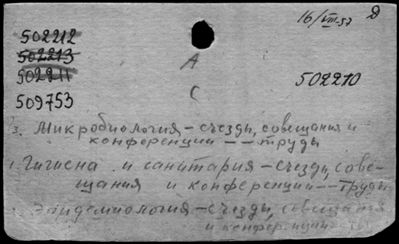 16/VIII.53 D
502212
502213
502211
509753
А
С
502210
3. Микробиология – съезды, совещания и
конференции – – труды
1. Гигиена и санитария – съезды, сове-
щания и конференции – – труды
Эпидемиология – съезды, совещания
и конференции